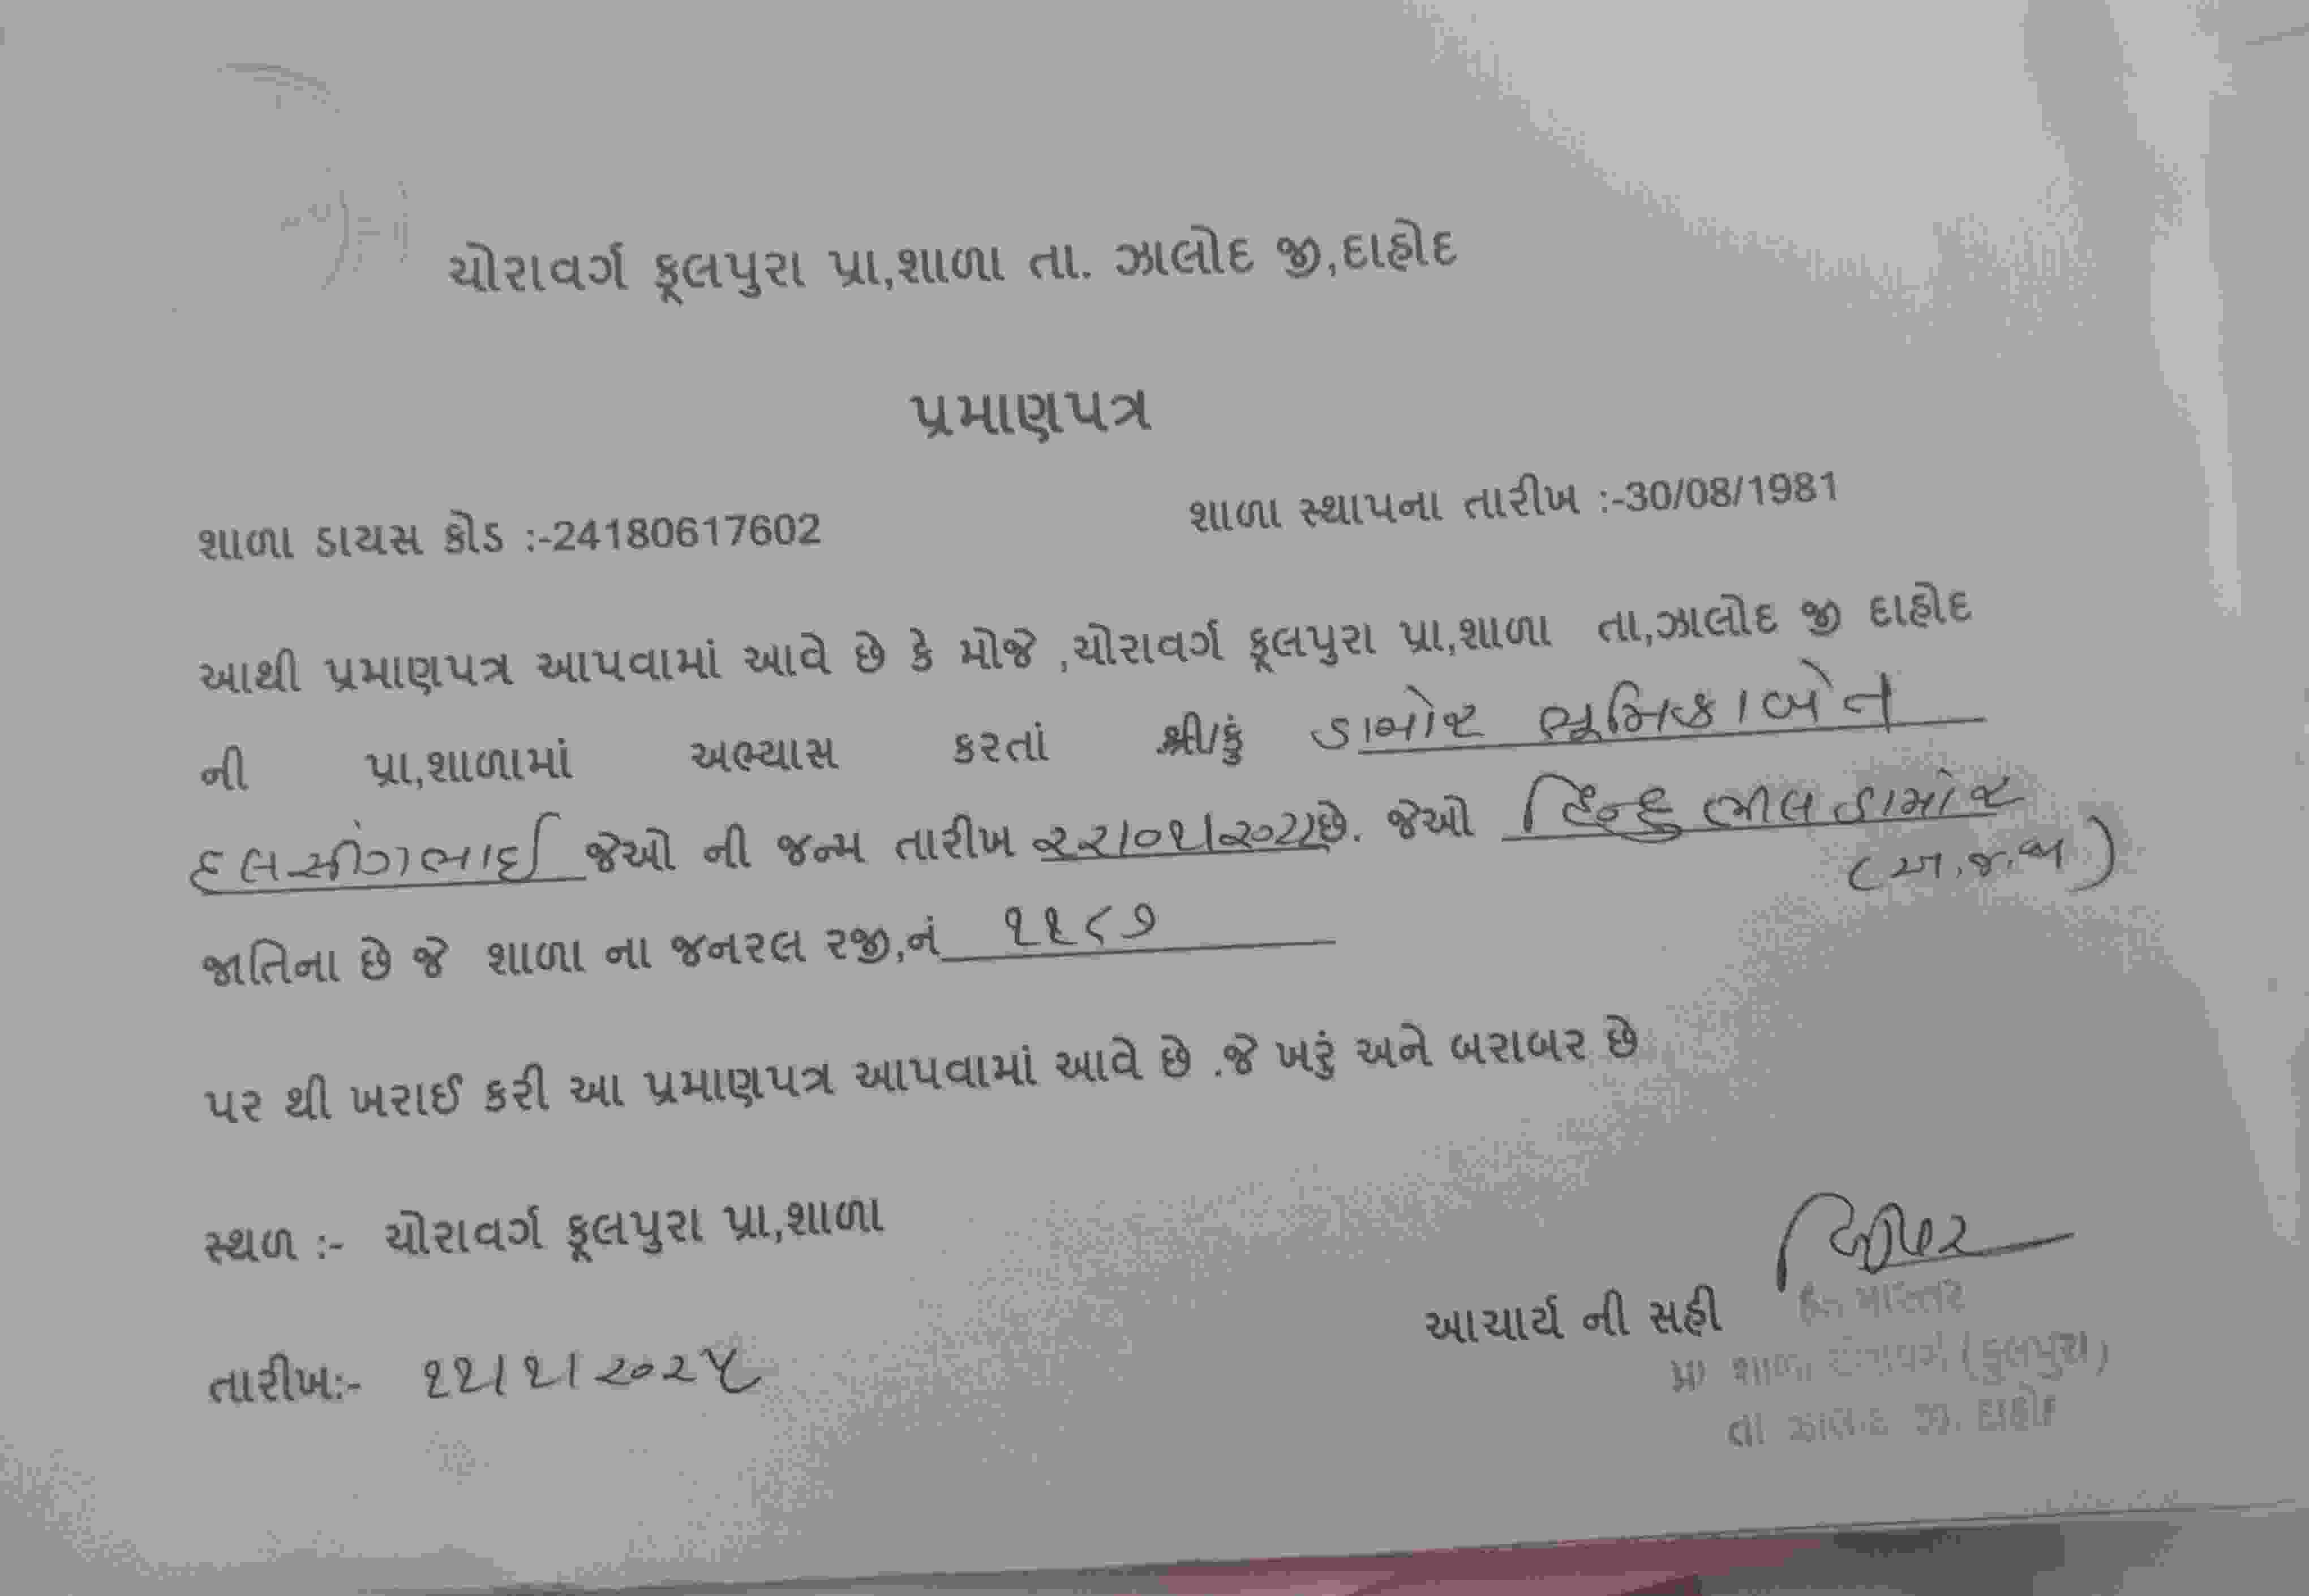 ચોરાવર્ગ ફૂલપુરા પ્રા,શાળા તા. ઝાલોદ જી,દાહોદ
પ્રમાણપત્ર
શાળા ડાયસ કોડ :-24180617602 શાળા સ્થાપના તારીખ :-30/08/1981
આથી પ્રમાણપત્ર આપવામાં આવે છે કે મોજે ,ચોરાવર્ગ ફૂલપુરા પ્રા,શાળા તા,ઝાલોદ જી દાહોદ
ની પ્રા,શાળામાં અભ્યાસ કરતાં શ્રી/કું ડામોર ભૂમિકાબેન
દલસીંગભાઈ જેઓ ની જન્મ તારીખ છે. જેઓ હિન્દુ ભીલ ડામોર
(અ.જ.જા)
જાતિના છે જે શાળા ના જનરલ રજી,નં ૧૧૮૭
પર થી ખરાઈ કરી આ પ્રમાણપત્ર આપવામાં આવે છે .જે ખરું અને બરાબર છે
સ્થળ :- ચોરાવર્ગ ફૂલપુરા પ્રા,શાળા
આચાર્ય ની સહી
તારીખ:- ૧૧/૧/૨૦૨૫
પ્રા શાળા (ફુલપુરા)
તા ઝાલોદ જી. દાહોદ